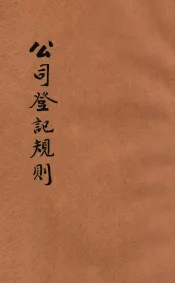 公司登記規则